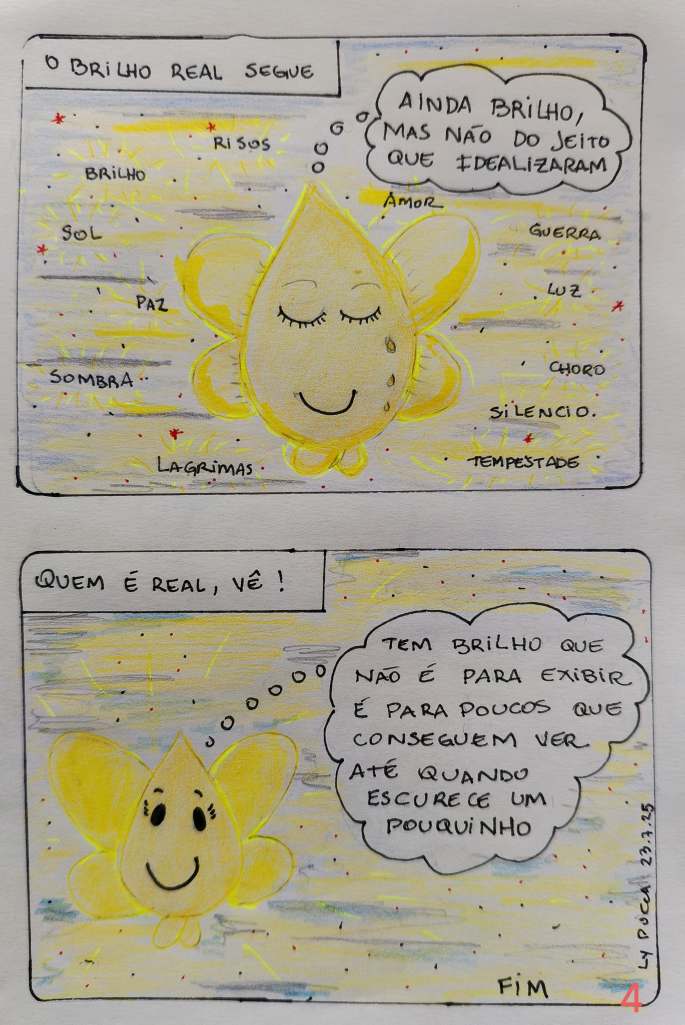 O BRILHO REAL SEGUE
AINDA BRILHO,
MAS NÃO DO JEITO
QUE IDEALIZARAM
RISOS
BRILHO
AMOR
SOL
GUERRA
PAZ
LUZ
SOMBRA
CHORO
SILENCIO.
LAGRIMAS
TEMPESTADE
QUEM É REAL, VÊ!
TEM BRILHO QUE
NÃO É PARA EXIBIR
É PARA POUCOS QUE
CONSEGUEM VER
ATÉ QUANDO
ESCURECE UM
POUQUINHO
LY POCCA 23.7.25
FIM
4